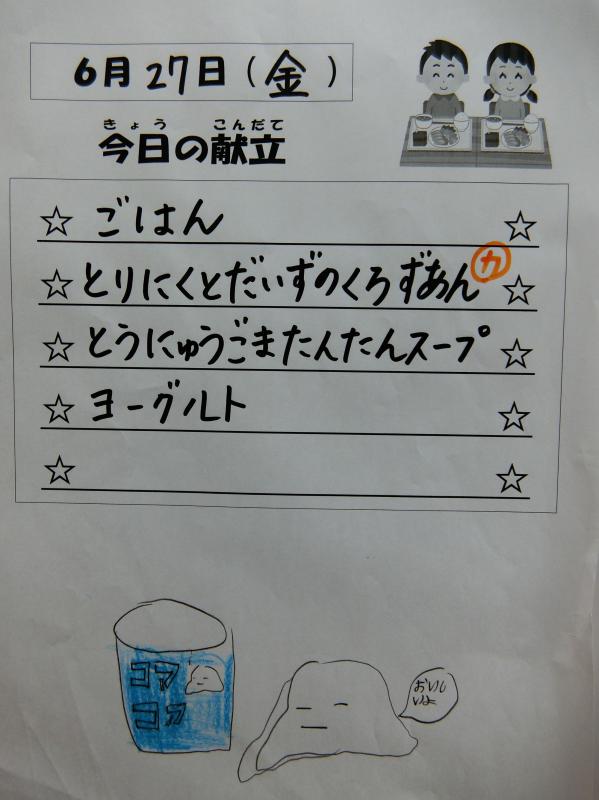 6月27日(金)
きょう こんだて
今日の献立
☆ ごはん ☆
☆ とりにくとだいずのくろずあん カ ☆
☆ とうにゅうごまたんたんスープ ☆
☆ ヨーグルト ☆
☆ ☆
おいし
いよ